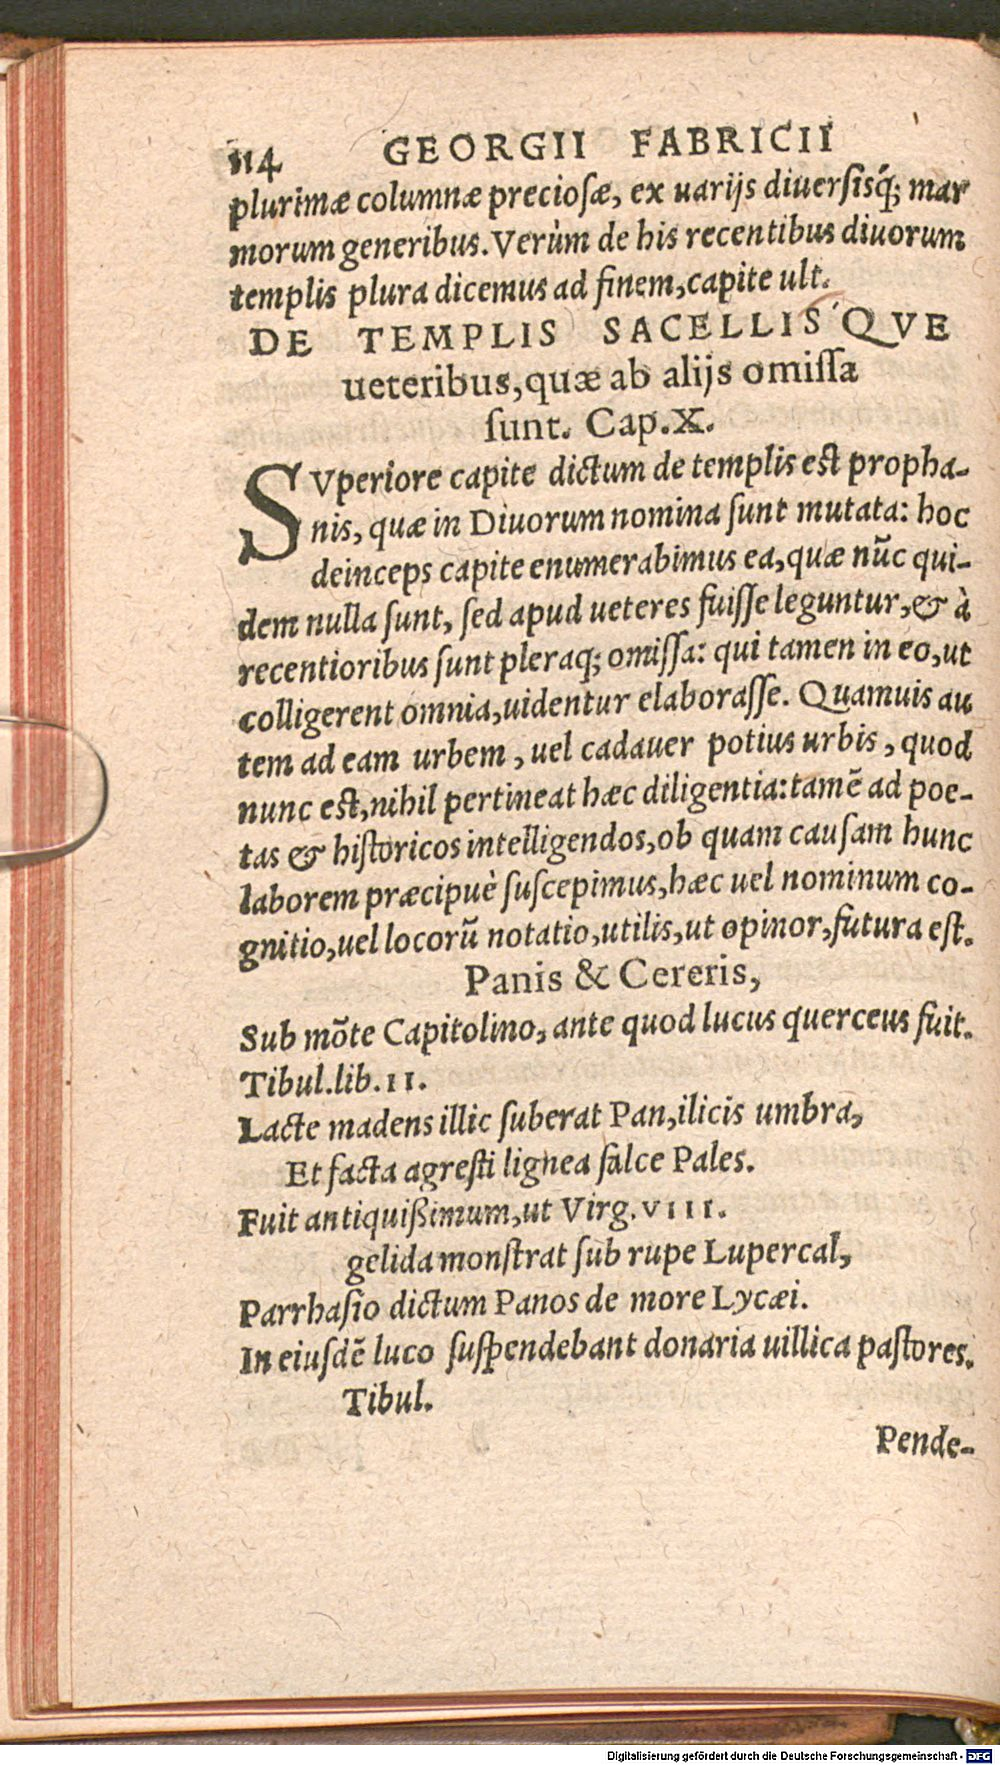 114 GEORGII FABRICII
plurimæ columnæ preciosæ, ex uarijs diuersisq́; mar
morum generibus. Verùm de his recentibus diuorum
templis plura dicemus ad finem, capite ult.
DE TEMPLIS SACELLISQVE
ueteribus, quæ ab alijs omissa
sunt. Cap. X.
SVperiore capite dictum de templis est propha-
nis, quæ in Diuorum nomina sunt mutata: hoc
deinceps capite enumerabimus ea, quæ nūc qui-
dem nulla sunt, sed apud ueteres fuisse leguntur, & à
recentioribus sunt pleraq; omissa: qui tamen in eo, ut
colligerent omnia, uidentur elaborasse. Quamuis au
tem ad eam urbem, uel cadauer potius urbis, quod
nunc est, nihil pertineat hæc diligentia: tamē ad poe-
tas & historicos intelligendos, ob quam causam hunc
laborem præcipuè suscepimus, hæc uel nominum co-
gnitio, uel locorū notatio, utilis, ut opinor, futura est.
Panis & Cereris,
Sub mōte Capitolino, ante quod lucus querceus fuit.
Tibul. lib. II.
Lacte madens illic suberat Pan, ilicis umbra,
Et facta agresti lignea falce Pales.
Fuit antiquißimum, ut Virg. VIII.
gelida monstrat sub rupe Lupercal,
Parrhasio dictum Panos de more Lycæi.
In eiusdē luco suspendebant donaria uillica pastores.
Tibul.
Pende-
Digitalisierung gefördert durch die Deutsche Forschungsgemeinschaft - DFG